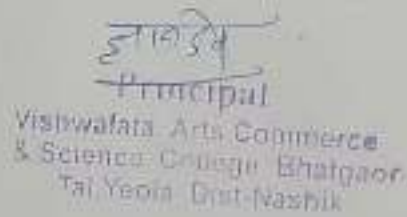 Principal
Vishwalata Arts Commerce
& Science College Bhatgaon
Tal.Yeola Dist-Nashik